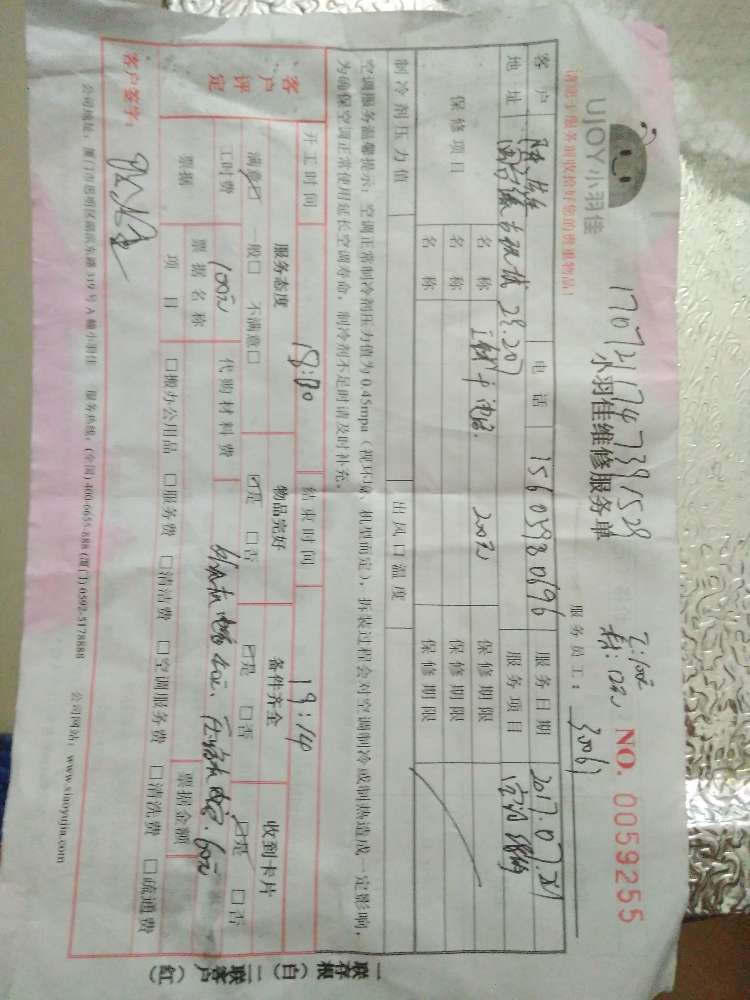 UJOY小羽佳
请您于服务前收拾好您的贵重物品!
小羽佳维修服务单
NO. 0059255
服务员工:
客户 电话 15605980696 服务日期 2017.07.21
地址 服务项目 空调维修
保修项目 名称 保修期限
名称 保修期限
名称 保修期限
200元
制冷剂压力值 出风口温度
空调服务温馨提示:空调正常制冷剂压力值为0.45mpa(视环境、机型而定),拆装过程会对空调制冷或制热造成一定影响,
为确保空调正常使用延长空调寿命,制冷剂不足时请及时补充。
开工时间 18:30 结束时间 19:14
客户评定 服务态度 物品完好 备件齐全 收到卡片
满意☑ 一般□ 不满意□ ☑是 □否 ☑是 □否 ☑是 □否
工时费 100元 代购材料费
票据 票据名称 票据金额
项目 □搬办公用品 □服务费 □清洁费 □空调服务费 □清洗费 □疏通费
客户签字:
公司地址:厦门市思明区湖滨东路319号A幢小羽佳 服务热线:(全国)400-6655-888 (厦门)0592-5178888 公司网站:www.xiaoyujia.com
一联存根(白) 二联客户(红)